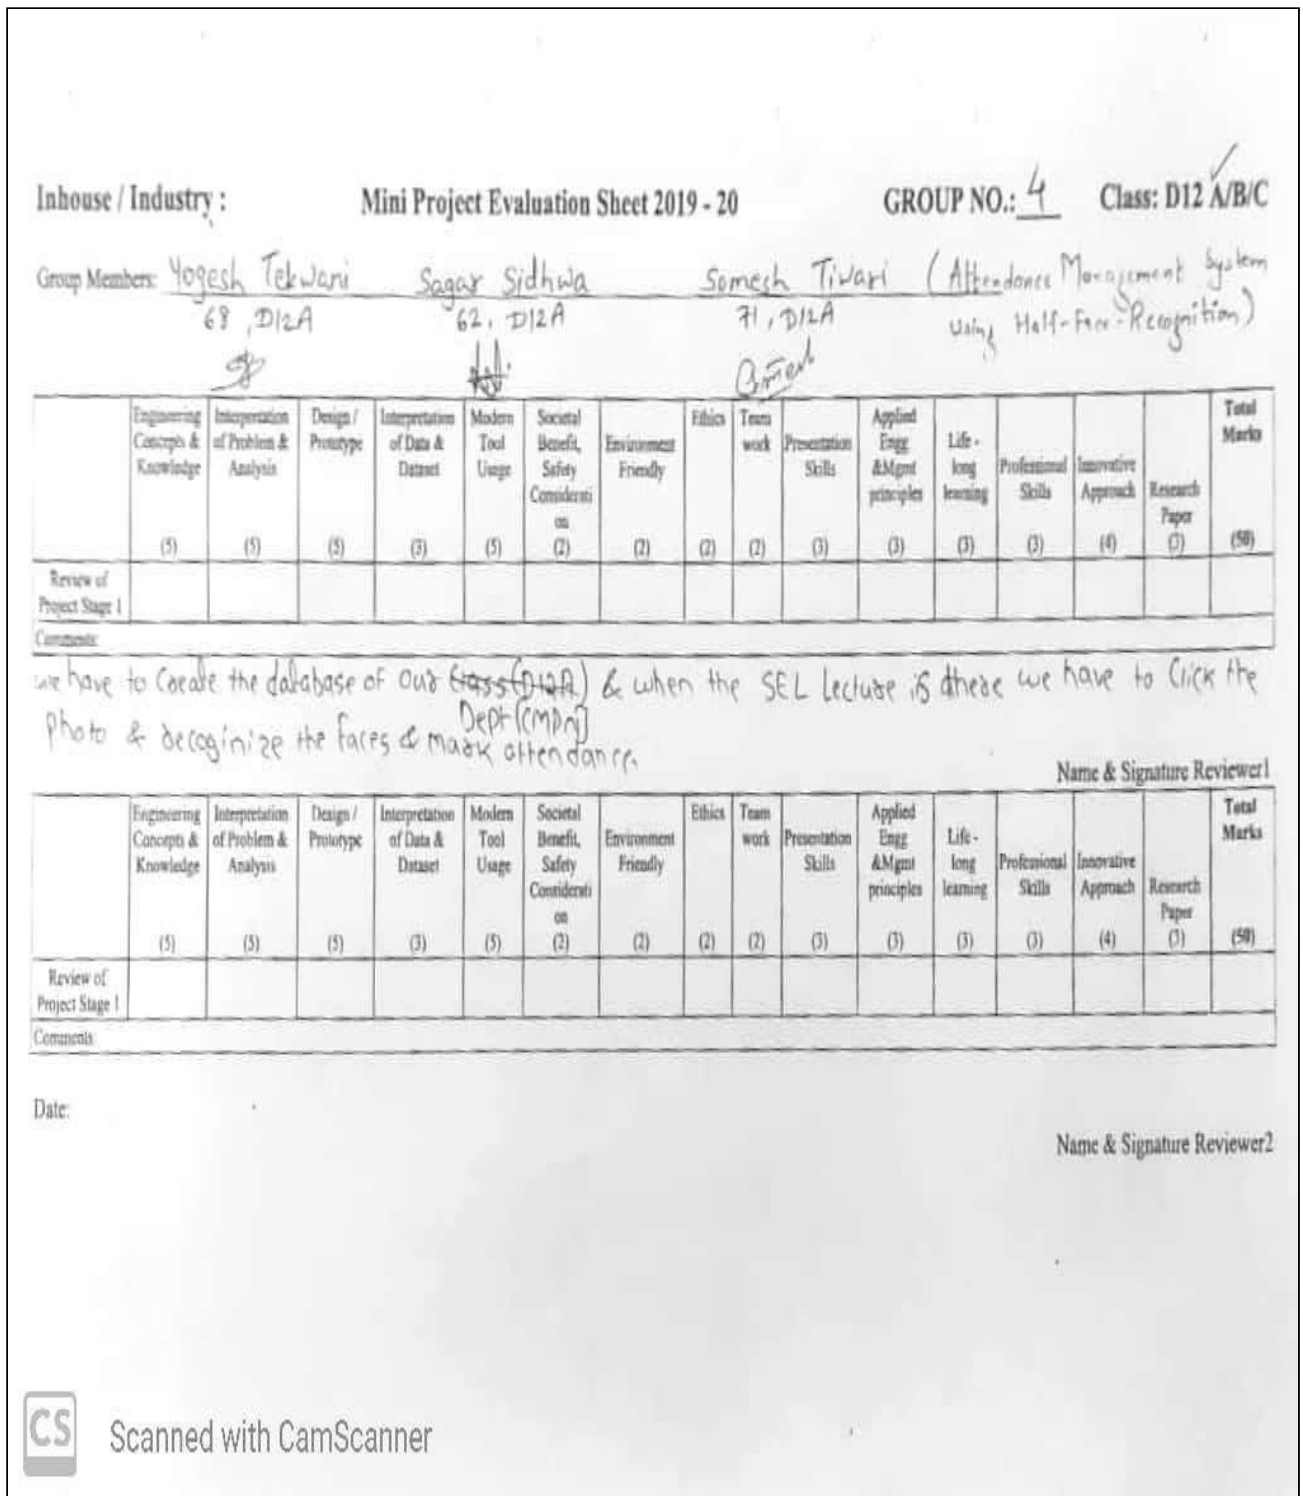 Inhouse / Industry : Mini Project Evaluation Sheet 2019 - 20 GROUP NO.: 4 Class: D12 A/B/C
Group Members: Yogesh Tekwani Sagar Sidhwa Somesh Tiwari (Attendance Management System
68, D12A 62, D12A 71, D12A using Half-Face-Recognition)
Engineering Concepts & Knowledge (5) Interpretation of Problem & Analysis (5) Design / Prototype (5) Interpretation of Data & Dataset (3) Modern Tool Usage (5) Societal Benefit, Safety Considerati on (2) Environment Friendly (2) Ethics (2) Team work (2) Presentation Skills (3) Applied Engg &Mgmt principles (3) Life - long learning (3) Professional Skills (3) Innovative Approach (4) Research Paper (3) Total Marks (50)
Review of Project Stage 1
Comments:
we have to Create the database of our Class (D12A) & when the SEL Lecture is there we have to Click the
Dept [CMPN]
photo & recoginize the faces & mark attendance.
Name & Signature Reviewer1
Engineering Concepts & Knowledge (5) Interpretation of Problem & Analysis (5) Design / Prototype (5) Interpretation of Data & Dataset (3) Modern Tool Usage (5) Societal Benefit, Safety Considerati on (2) Environment Friendly (2) Ethics (2) Team work (2) Presentation Skills (3) Applied Engg &Mgmt principles (3) Life - long learning (3) Professional Skills (3) Innovative Approach (4) Research Paper (3) Total Marks (50)
Review of Project Stage 1
Comments
Date:
Name & Signature Reviewer2
CS Scanned with CamScanner